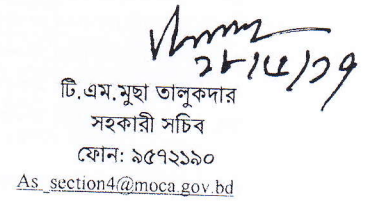 ২৮/৫/১৭
টি.এম.মুছা তালুকদার
সহকারী সচিব
ফোন: ৯৫৭২১৯০
As_section4@moca.gov.bd